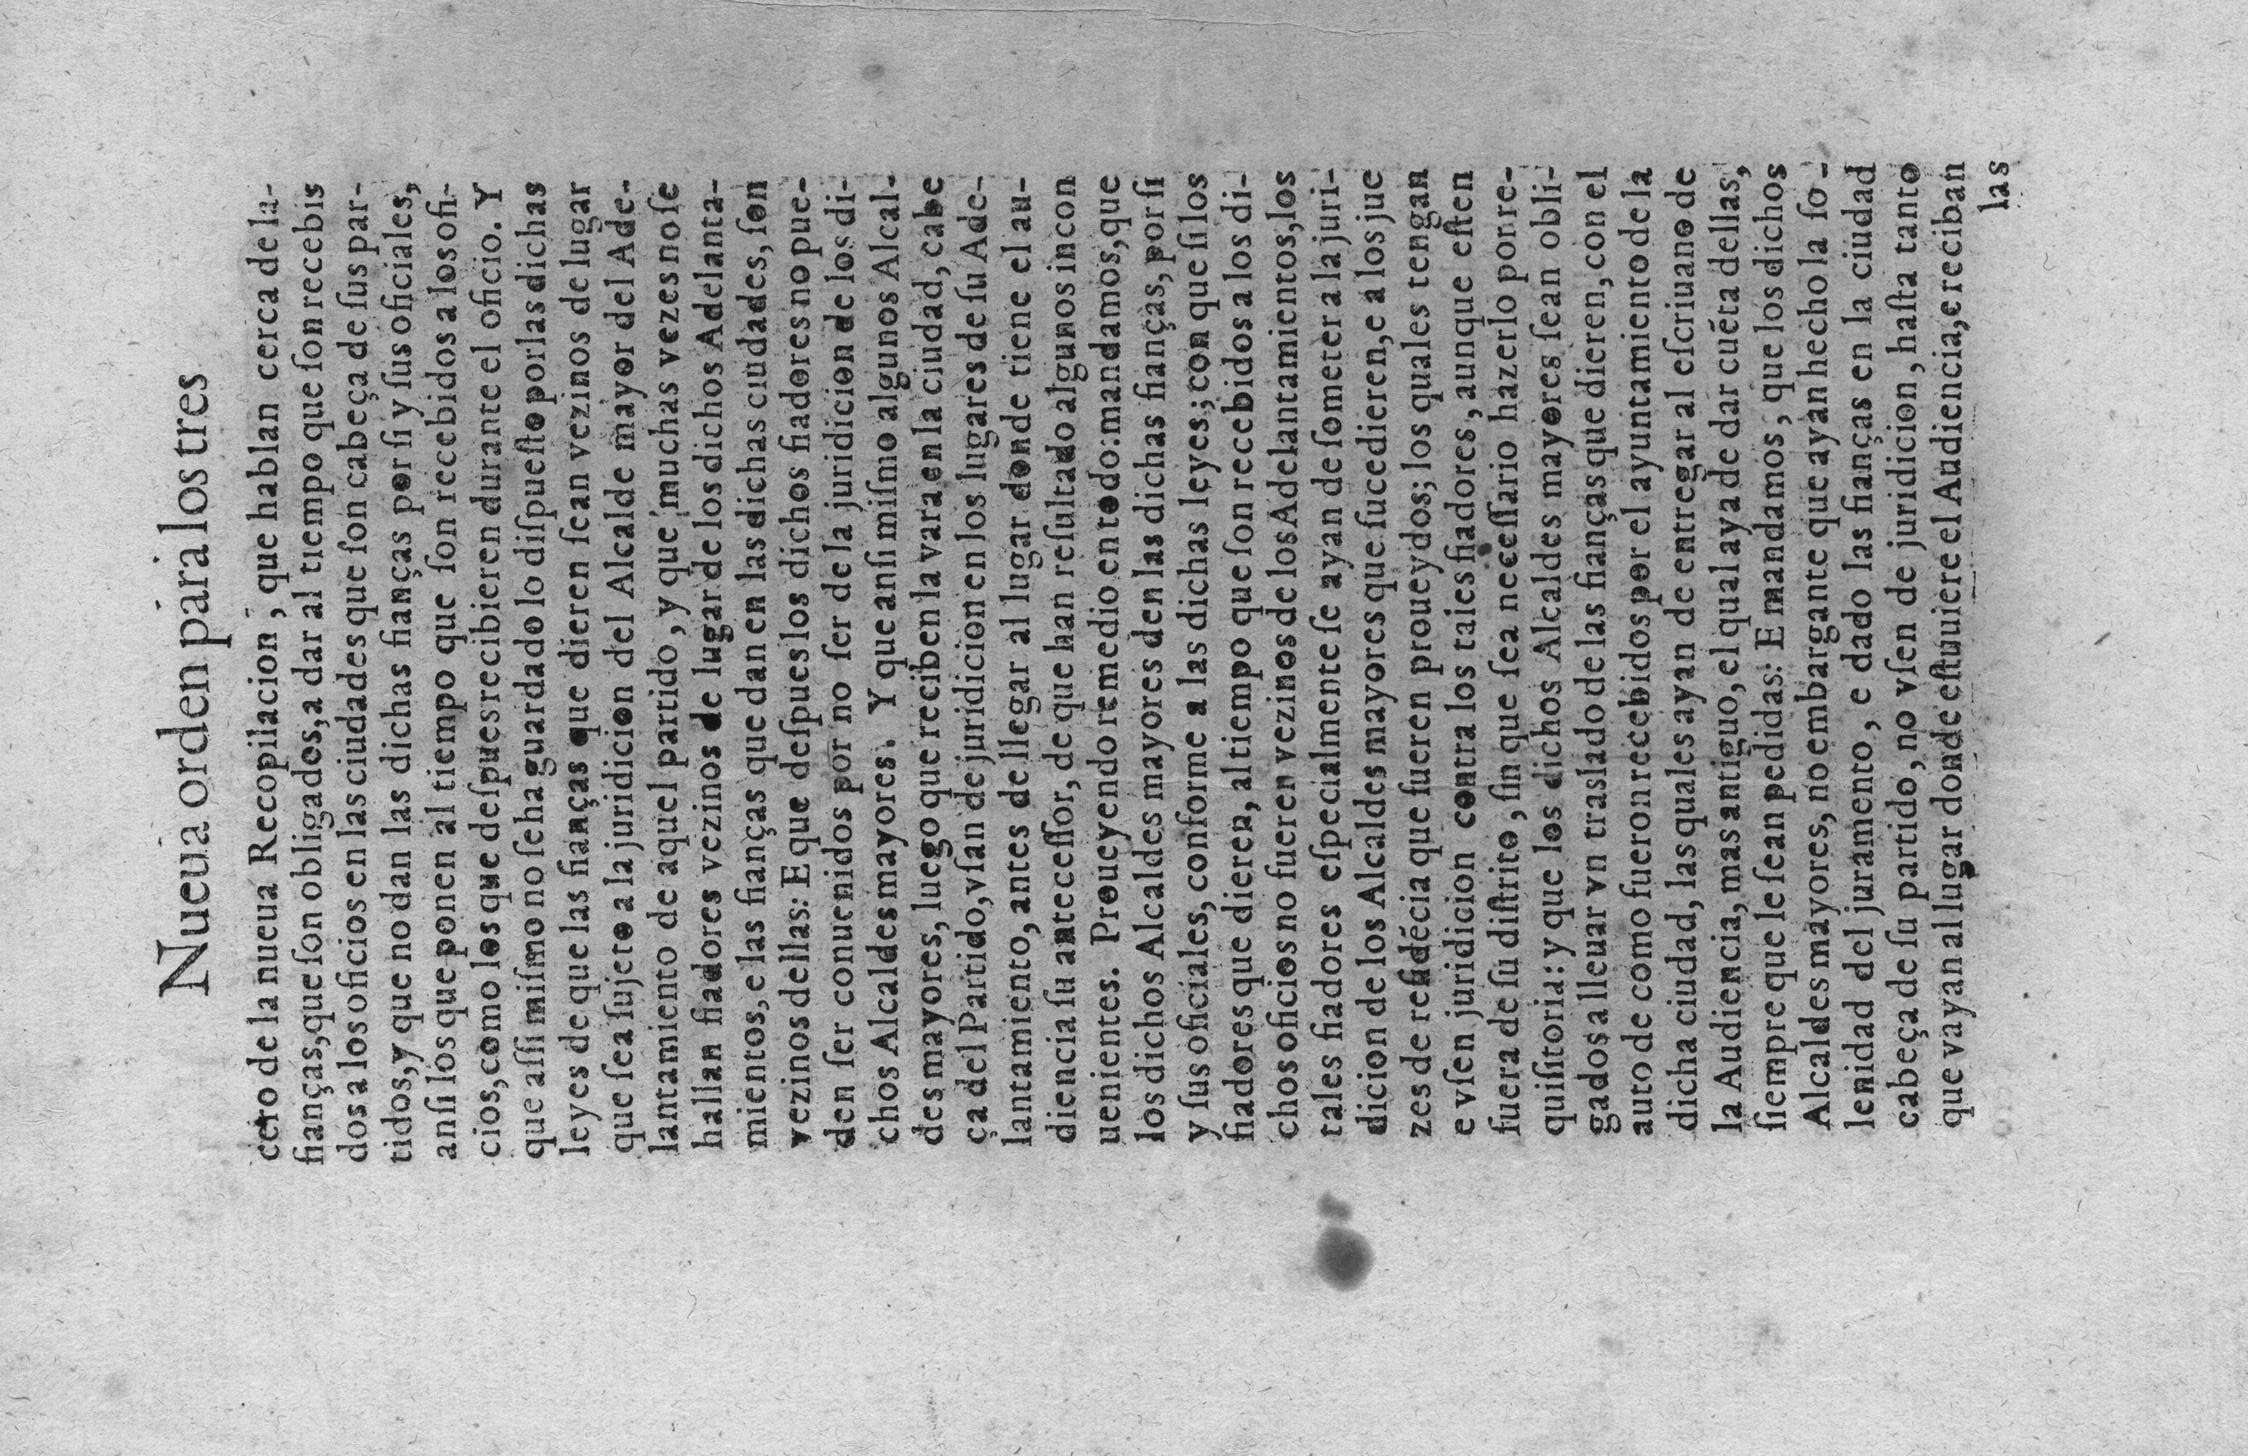 Nueua orden para los tres
cero de la nueua Recopilacion, que hablan cerca de la-
fianças, que ſon obligados, a dar al tiempo que ſon recebis
dos a los oficios en las ciudades que ſon cabeça de ſus par-
tidos, y que no dan las dichas fianças por ſi y ſus oficiales,
anſi los que ponen al tiempo que ſon recebidos a los ofi-
cios, como los que deſpues recibieren durante el oficio. Y
que aſſi miſmo no ſe ha guardado lo diſpueſto por las dichas
leyes de que las fianças que dieren ſean vezinos de lugar
que ſea ſujeto a la juridicion del Alcalde mayor del Ade-
lantamiento de aquel partido, y que muchas vezes no ſe
hallan fiadores vezinos de lugar de los dichos Adelanta-
mientos, e las fianças que dan en las dichas ciudades, ſon
vezinos dellas: E que deſpues los dichos fiadores no pue-
den ſer conuenidos por no ſer de la juridicion de los di-
chos Alcaldes mayores. Y que anſi miſmo algunos Alcal-
des mayores, luego que reciben la vara en la ciudad, cabe
ça del Partido, vſan de juridicion en los lugares de ſu Ade-
lantamiento, antes de llegar al lugar donde tiene el au-
diencia ſu anteceſſor, de que han reſultado algunos incon
uenientes. Proueyendo remedio en todo: mandamos, que
los dichos Alcaldes mayores den las dichas fianças, por ſi
y ſus oficiales, conforme a las dichas leyes; con que ſi los
fiadores que dieren, al tiempo que ſon recebidos a los di-
chos oficios no fueren vezinos de los Adelantamientos, los
tales fiadores eſpecialmente ſe ayan de ſometer a la juri-
dicion de los Alcaldes mayores que ſucedieren, e a los jue
zes de reſidécia que fueren proueydos; los quales tengan
e vſen juridicion contra los tales fiadores, aunque eſten
fuera de ſu diſtrito, ſin que ſea neceſſario hazerlo por re-
quiſitoria: y que los dichos Alcaldes mayores ſean obli-
gados a lleuar vn traslado de las fianças que dieren, con el
auto de como fueron recebidos por el ayuntamiento de la
dicha ciudad, las quales ayan de entregar al eſcriuano de
la Audiencia, mas antiguo, el qual aya de dar cuéta dellas,
ſiempre que le ſean pedidas: E mandamos, que los dichos
Alcaldes mayores, no embargante que ayan hecho la ſo-
lenidad del juramento, e dado las fianças en la ciudad
cabeça de ſu partido, no vſen de juridicion, haſta tanto
que vayan al lugar donde eſtuuiere el Audiencia, e reciban
las